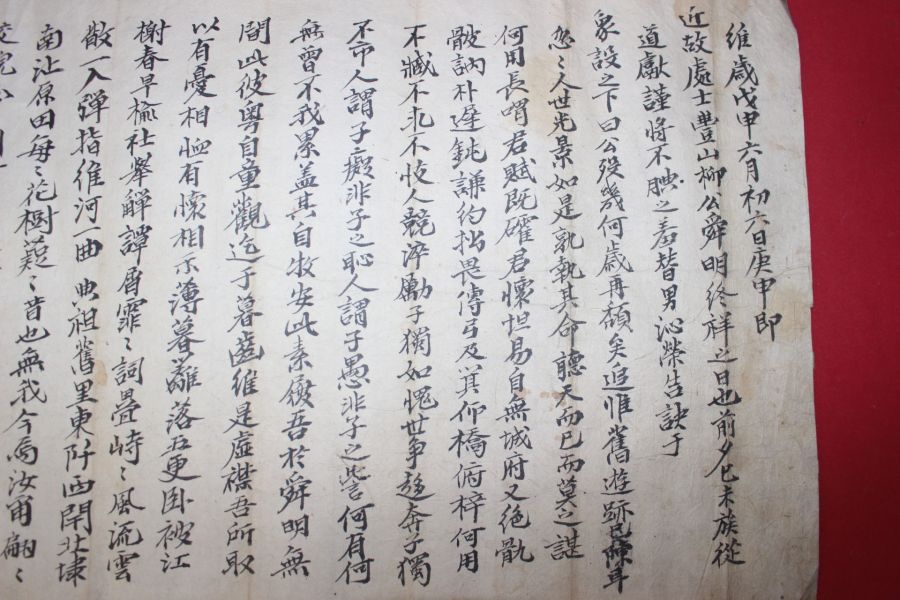 維歲戊申六月初六日庚申即
近故處士豐山柳公舜明終祥之日也前夕己未族從
道獻謹將不腆之羞替男沁榮告訣于
象設之下曰公歿幾何歲再頟矣追惟舊遊跡已陳耳
忽〻人世光景如是孰執其命聽天而已而莫之諶
何用長喟君賦旣確君懷坦易自無城府又絶骫
骳訥朴遲鈍謙約拙畏傳弓及箕仰橋俯梓何用
不臧不求不忮人競淬勵子獨如愧世爭趍奔子獨
不命人謂子癡非子之恥人謂子愚非子之訾何有何
無曾不我累盖其自牧安此素履吾於舜明無
間此彼粤自童觀迄于暮齒維是虛襟吾所取
以有憂相恤有懷相示薄暮離落五更卧被江
榭春早楡社擧觶譚屑霏〻詞疊峙〻風流雲
散一入彈指維河一曲典祖舊里東阡西閈北埭
南沚原田每〻花樹薿〻昔也無我今焉汝甭翩〻